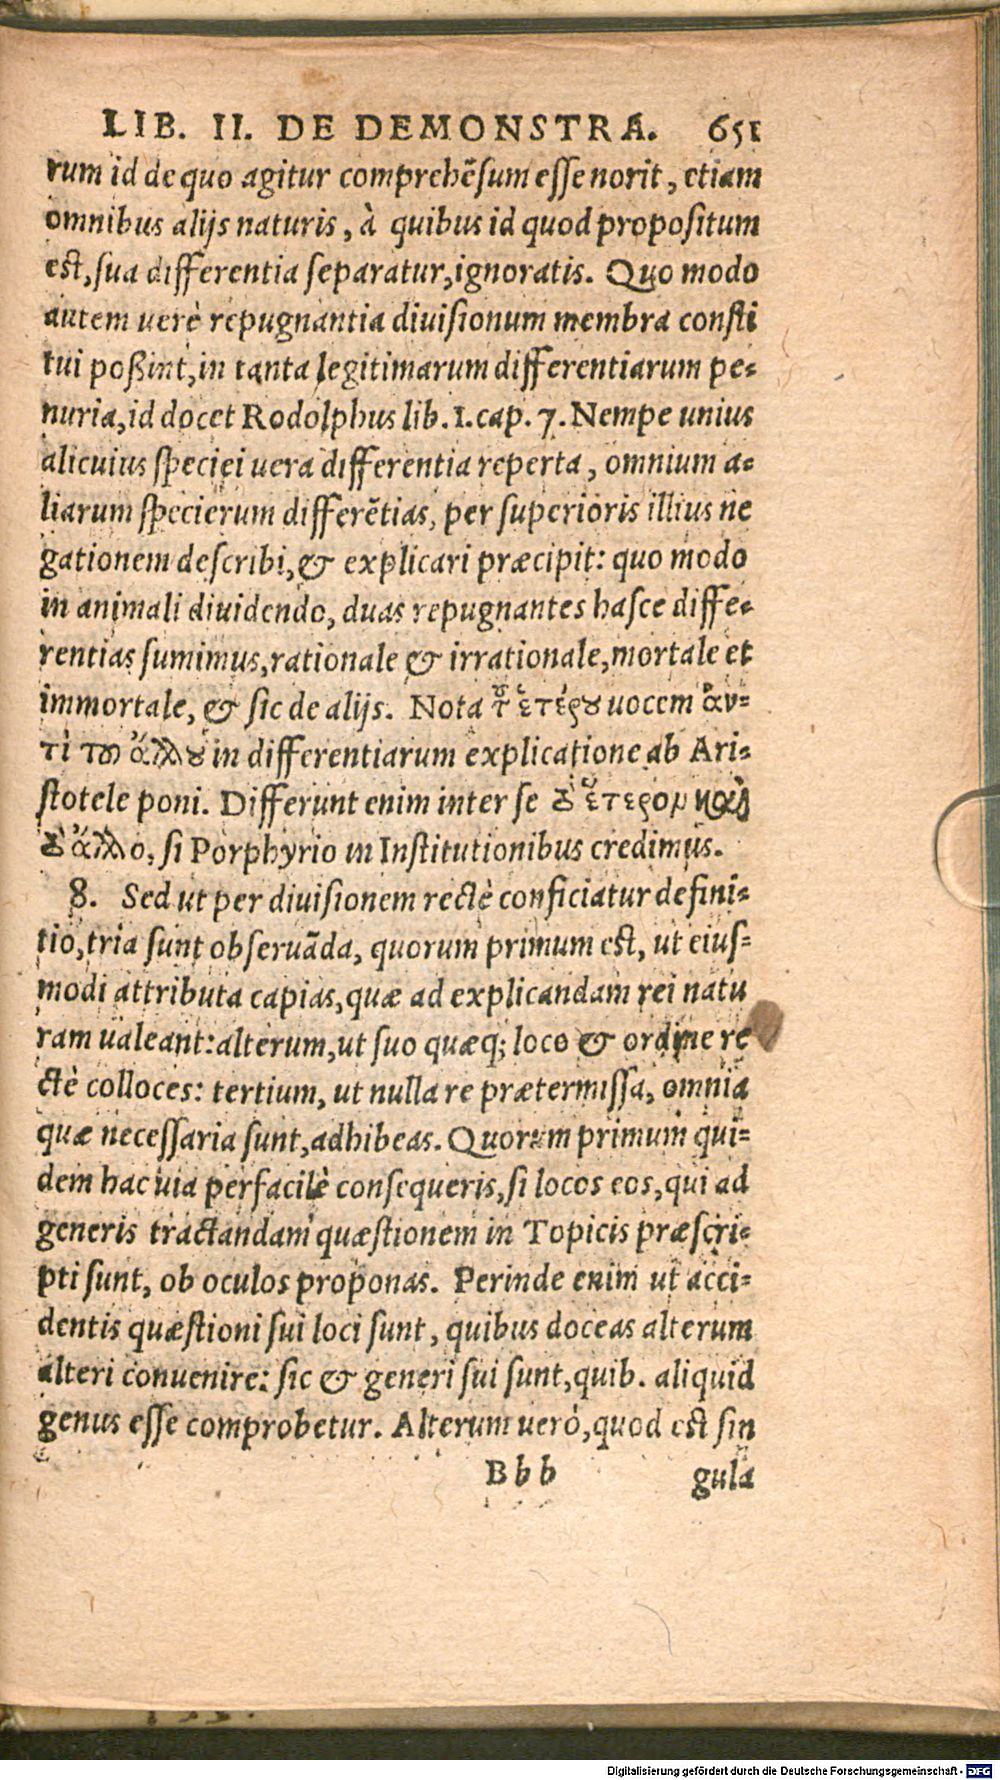 LIB. II. DE DEMONSTRA. 651
rum id de quo agitur comprehēsum esse norit, etiam
omnibus alijs naturis, à quibus id quod propositum
est, sua differentia separatur, ignoratis. Quo modo
autem uerè repugnantia diuisionum membra consti
tui poßint, in tanta legitimarum differentiarum pe-
nuria, id docet Rodolphus lib. 1. cap. 7. Nempe unius
alicuius speciei uera differentia reperta, omnium a-
liarum specierum differētias, per superioris illius ne
gationem describi, & explicari præcipit: quo modo
in animali diuidendo, duas repugnantes hasce diffe-
rentias sumimus, rationale & irrationale, mortale et
immortale, & sic de alijs. Nota τ͂ ἑτέρου uocem ἀν-
τὶ τοῦ ἄλλου in differentiarum explicatione ab Ari-
stotele poni. Differunt enim inter se τὸ ἕτερον καὶ
τὸ ἄλλο, si Porphyrio in Institutionibus credimus.
8. Sed ut per diuisionem rectè conficiatur defini-
tio, tria sunt obseruāda, quorum primum est, ut eius-
modi attributa capias, quæ ad explicandam rei natu
ram ualeant: alterum, ut suo quæq; loco & ordine re
ctè colloces: tertium, ut nulla re prætermissa, omnia
quæ necessaria sunt, adhibeas. Quorum primum qui-
dem hac uia perfacilè consequeris, si locos eos, qui ad
generis tractandam quæstionem in Topicis præscri-
pti sunt, ob oculos proponas. Perinde enim ut acci-
dentis quæstioni sui loci sunt, quibus doceas alterum
alteri conuenire: sic & generi sui sunt, quib. aliquid
genus esse comprobetur. Alterum uerò, quod est sin
Bbb gula
Digitalisierung gefördert durch die Deutsche Forschungsgemeinschaft - DFG